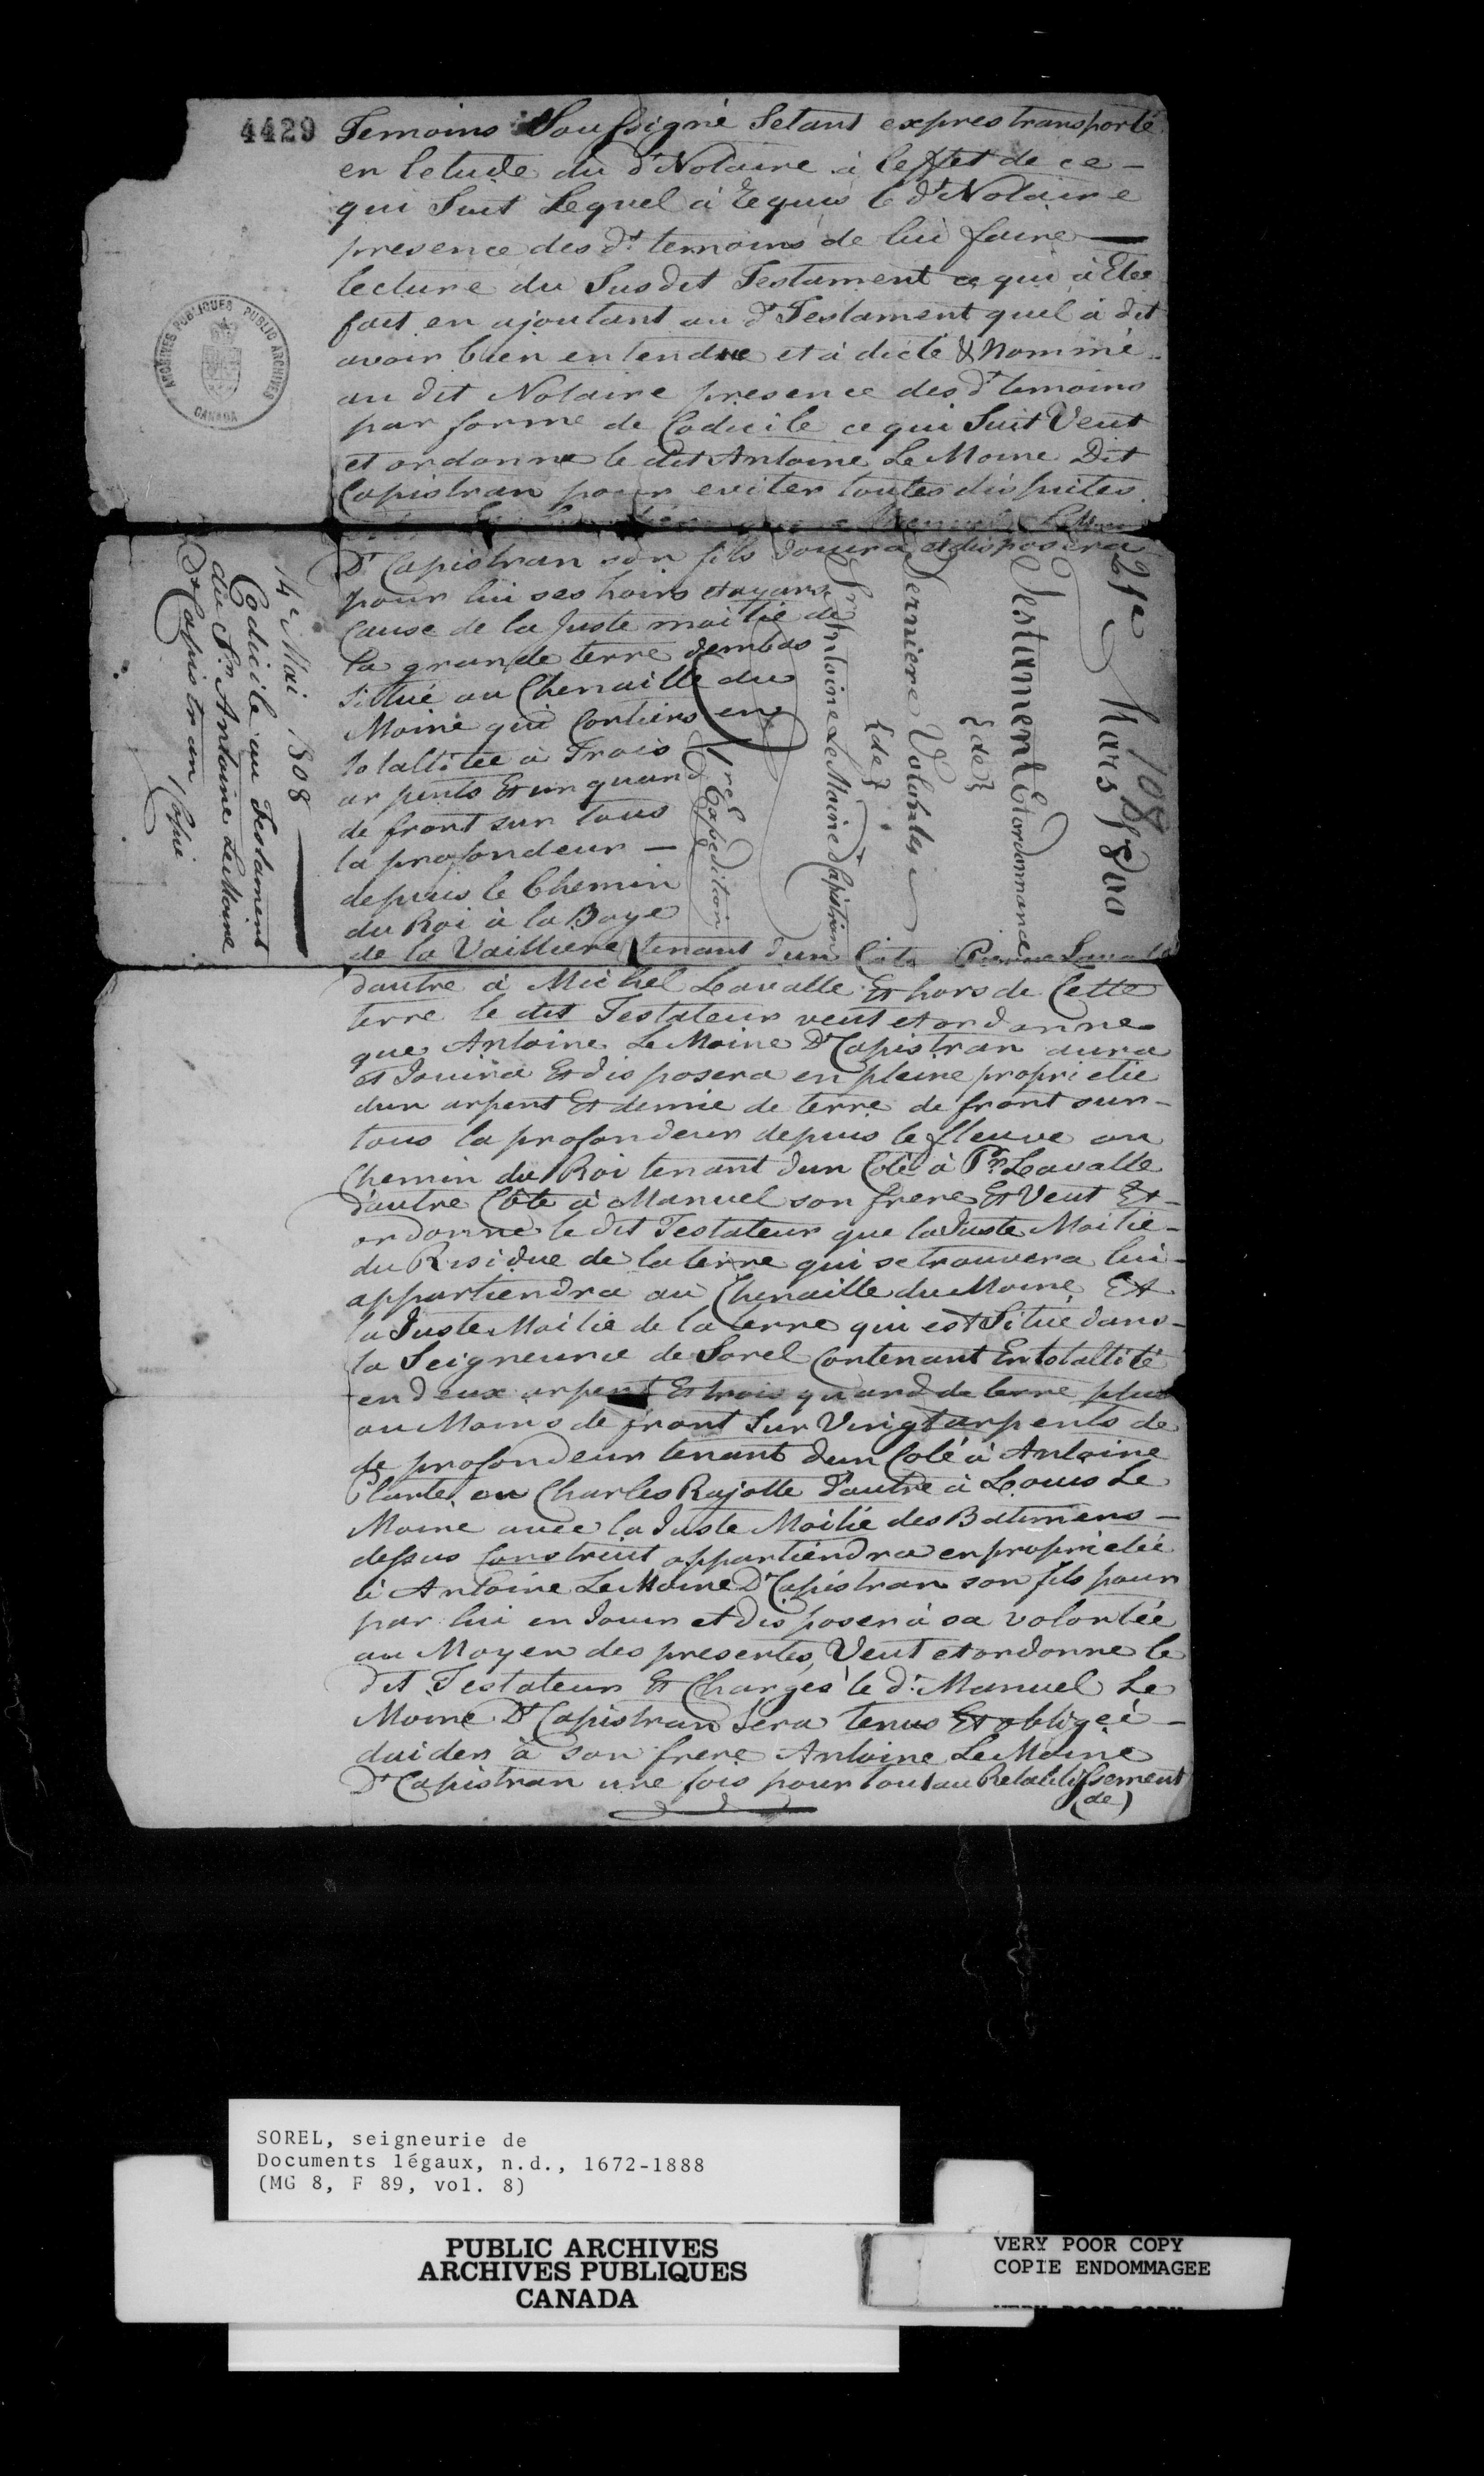 4429
Temoins Soussigné Setant expres transporté
en letude du dt Notaire à leffet de ce —
qui Suit Lequel à Requis le dt Notaire
presence des dt temoins de lui faire —
lecture du Susdit Testament ce qui à Ete
fait en ajoutant au dt Testament quel à dit
avoir bien entendue et à dicté & Nommé
au dit Notaire presence des dt temoins
par forme de Codicile ce qui Suit Veut
et ordonne le dit Antoine Le Moine Dit
Capistran pour eviter toutes disputes
Dt Capistran son fils Jouira et disposera
pour lui ses hoirs et ayans
Cause de la Juste moitié de
la grande terre dembas
Situé au Chenaille du
Moine qui Contiens en
totallitée à Trois
arpents Et un quard
de front sur tous
la profondeur —
depuis le Chemin
du Roi à la Baye
de la Valliere tenant dun Coté Pierre Lavalle
dautre à Michel Lavalle Et hors de Cette
terre le dit Testateur veut et ordonne
que Antoine Le Moine Dt Capistran aura
et Jouira Et disposera en pleine proprietie
dun arpent Et demie de terre de front sur —
tous la profondeur depuis le fleuve au
Chemin du Roi tenant dun Coté à Prre Lavalle
dautre Côte à Manuel son frere Et Veut Et —
ordonne le dit Testateur que la Juste Moitie —
du Residue de la terre qui se trouvera lui —
appartiendra au Chenaille du Moine Et
la Juste Moitié de la terre qui est Situé dans —
la Seigneurie de Sorel Contenant En totallité
en deux arpent Et trois quard de terre plus
ou Moins de front Sur Vingt arpents de
de profondeur tenant dun Colé à Antoine
Plante ou Charles Rajotte Dautre à Louis Le
Moine avec la Juste Moitié des Batimens —
dessus Construit appartiendra en proprietée
à Antoine Le Moine Dt Capistran son fils pour
par lui en Jouir et disposer à sa volontée
au Moyen des presentes, Veut et ordonne le
dit Testateur Et Charges le dt Manuel Le
Moine Dt Capistran Sera tenus Et obligée —
daider à son frere Antoine Le Moine
Dt Capistran une fois pour tout au Retablissement
(de)
21e Mars 1800
108
Testament Et ordonnance
{de}
Derniere Volontée
{de}
Sr Antoine Le Moine dt Capistran
1re Expedition
14e Mai 1808
Codicile au Testament
du Sr Antoine Le Moine
Dt Capistran
Copie
ARCHIVES PUBLIQUES PUBLIC ARCHIVES
CANADA
SOREL, seigneurie de
Documents légaux, n.d., 1672-1888
(MG 8, F 89, vol. 8)
PUBLIC ARCHIVES
ARCHIVES PUBLIQUES
CANADA
VERY POOR COPY
COPIE ENDOMMAGEE
VERY POOR COPY